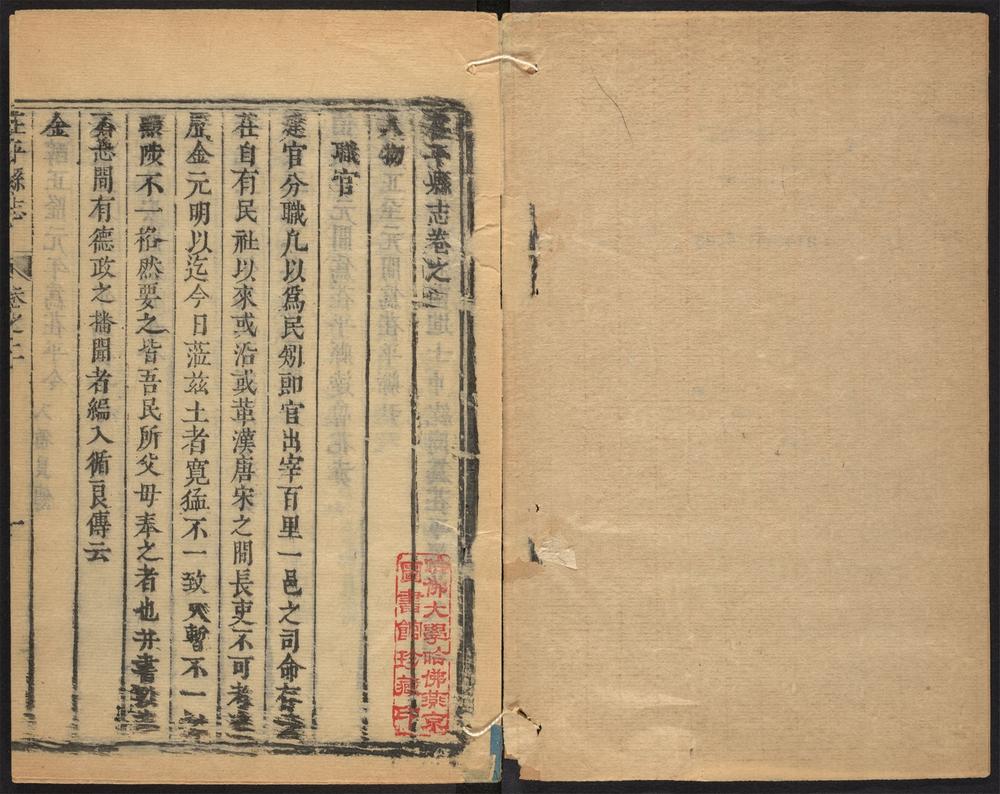 茌平縣志卷之二
人物
職官
建官分職凡以爲民矧即官出宰百里一邑之司命存
茌自有民社以來或沿或革漢唐宋之間長吏不可考
金元明以迄今日蒞兹土者寬猛不一致久暫不一
顯陟不一格然要之皆吾民所父母奉之者也并書
忘間有德政之播聞者編入循良傳云
金
茌平縣志
卷之二
一
哈佛大學哈佛燕京
圖書館珍藏印